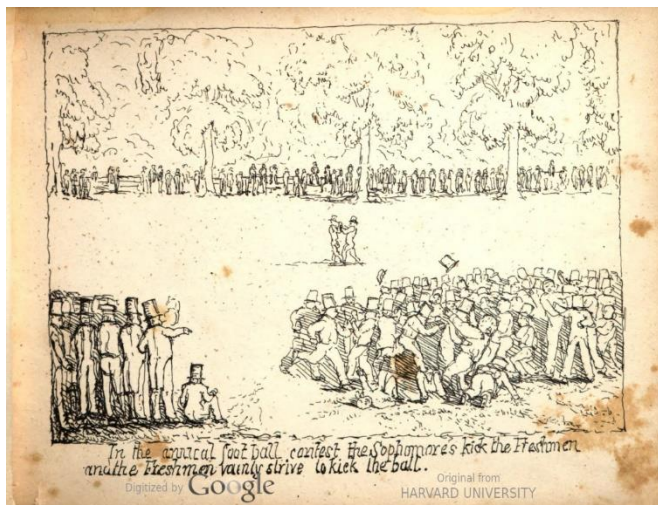 In the annual foot ball contest the Sophomores kick the Freshmen
and the Freshmen vainly strive to kick the ball.
Digitized by Google
Original from
HARVARD UNIVERSITY